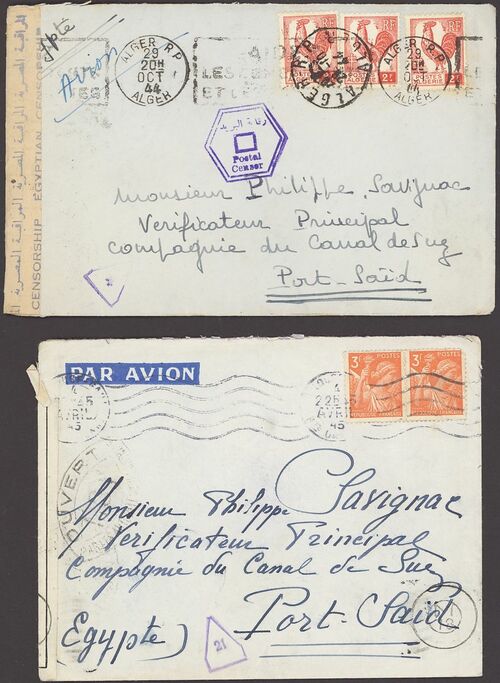 Avion
ALGER R.P.
29
20H
OCT
44
ALGER
RF
2F
ALGER R.P.
29
OCT
ALGER
CENSORSHIP. EGYPTIAN CENSORSHIP
المراقبة المصرية
رقابة البريد
Postal
Censor
Monsieur Philippe Savignac
Vérificateur Principal
Compagnie du Canal de Suez
Port-Saïd
PAR AVION
3F POSTES
3F POSTES
4
AVRIL
45
4
AVRIL
45
OUVERT
Monsieur Philippe Savignac
Vérificateur Principal
Compagnie du Canal de Suez
Port-Saïd
Egypte)
21